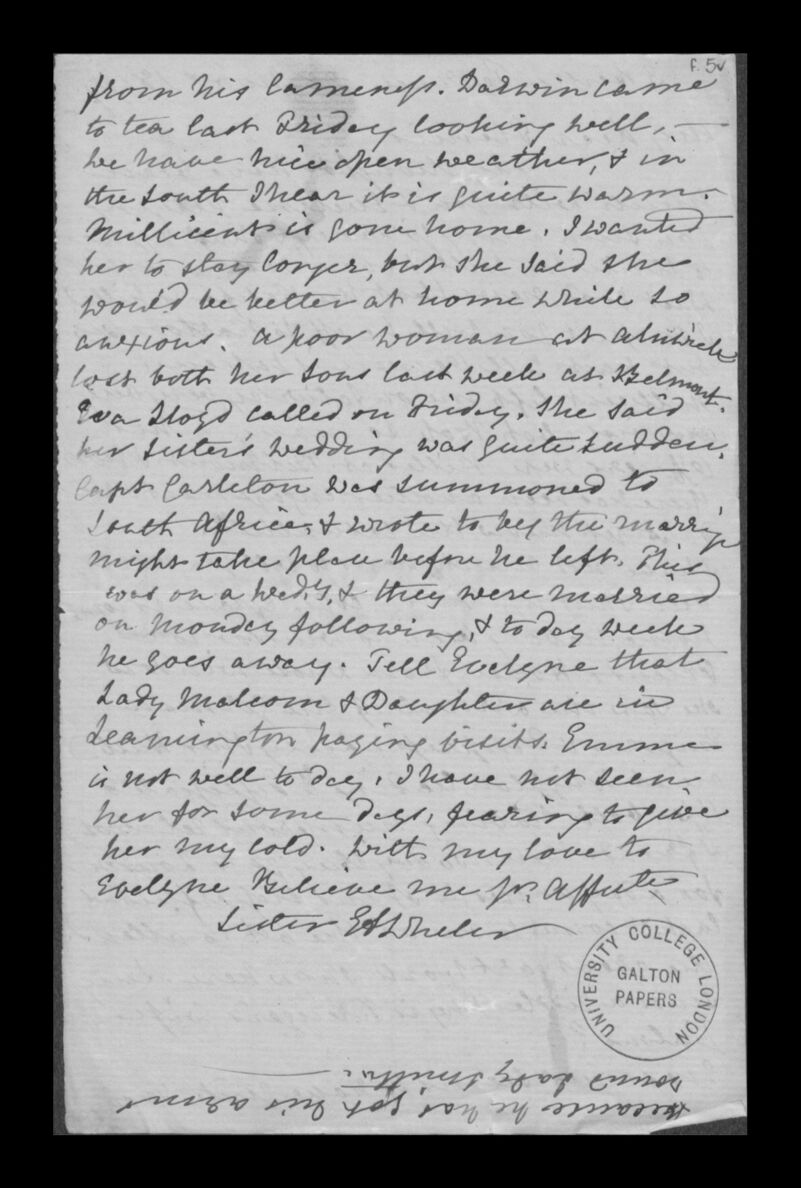 f. 5v
from his lameness. Darwin came
to tea last Friday looking well, —
we have nice open weather, & in
the South I hear it is quite warm.
Millicent is gone home. I wanted
her to stay longer, but she said she
would be better at home while so
anxious. A poor woman at Alnwick
lost both her Sons last week at Belmont.
Eva Lloyd called on Friday. She said
her Sister's wedding was quite sudden.
Capt Carleton was summoned to
South Africa, & wrote to beg the marriage
might take place before he left. This
was on a Wed.y, & they were married
on Monday following, & to day week
he goes away. Tell Evelyne that
Lady Malcom & Daughter are in
Leamington paying visits. Emma
is not well to day. I have not seen
her for some days, fearing to give
her my cold. With my love to
Evelyne Believe me yr. Affecte
Sister E A Wheler
UNIVERSITY COLLEGE LONDON
GALTON
PAPERS
because he has got his arm
round Lady Smith's